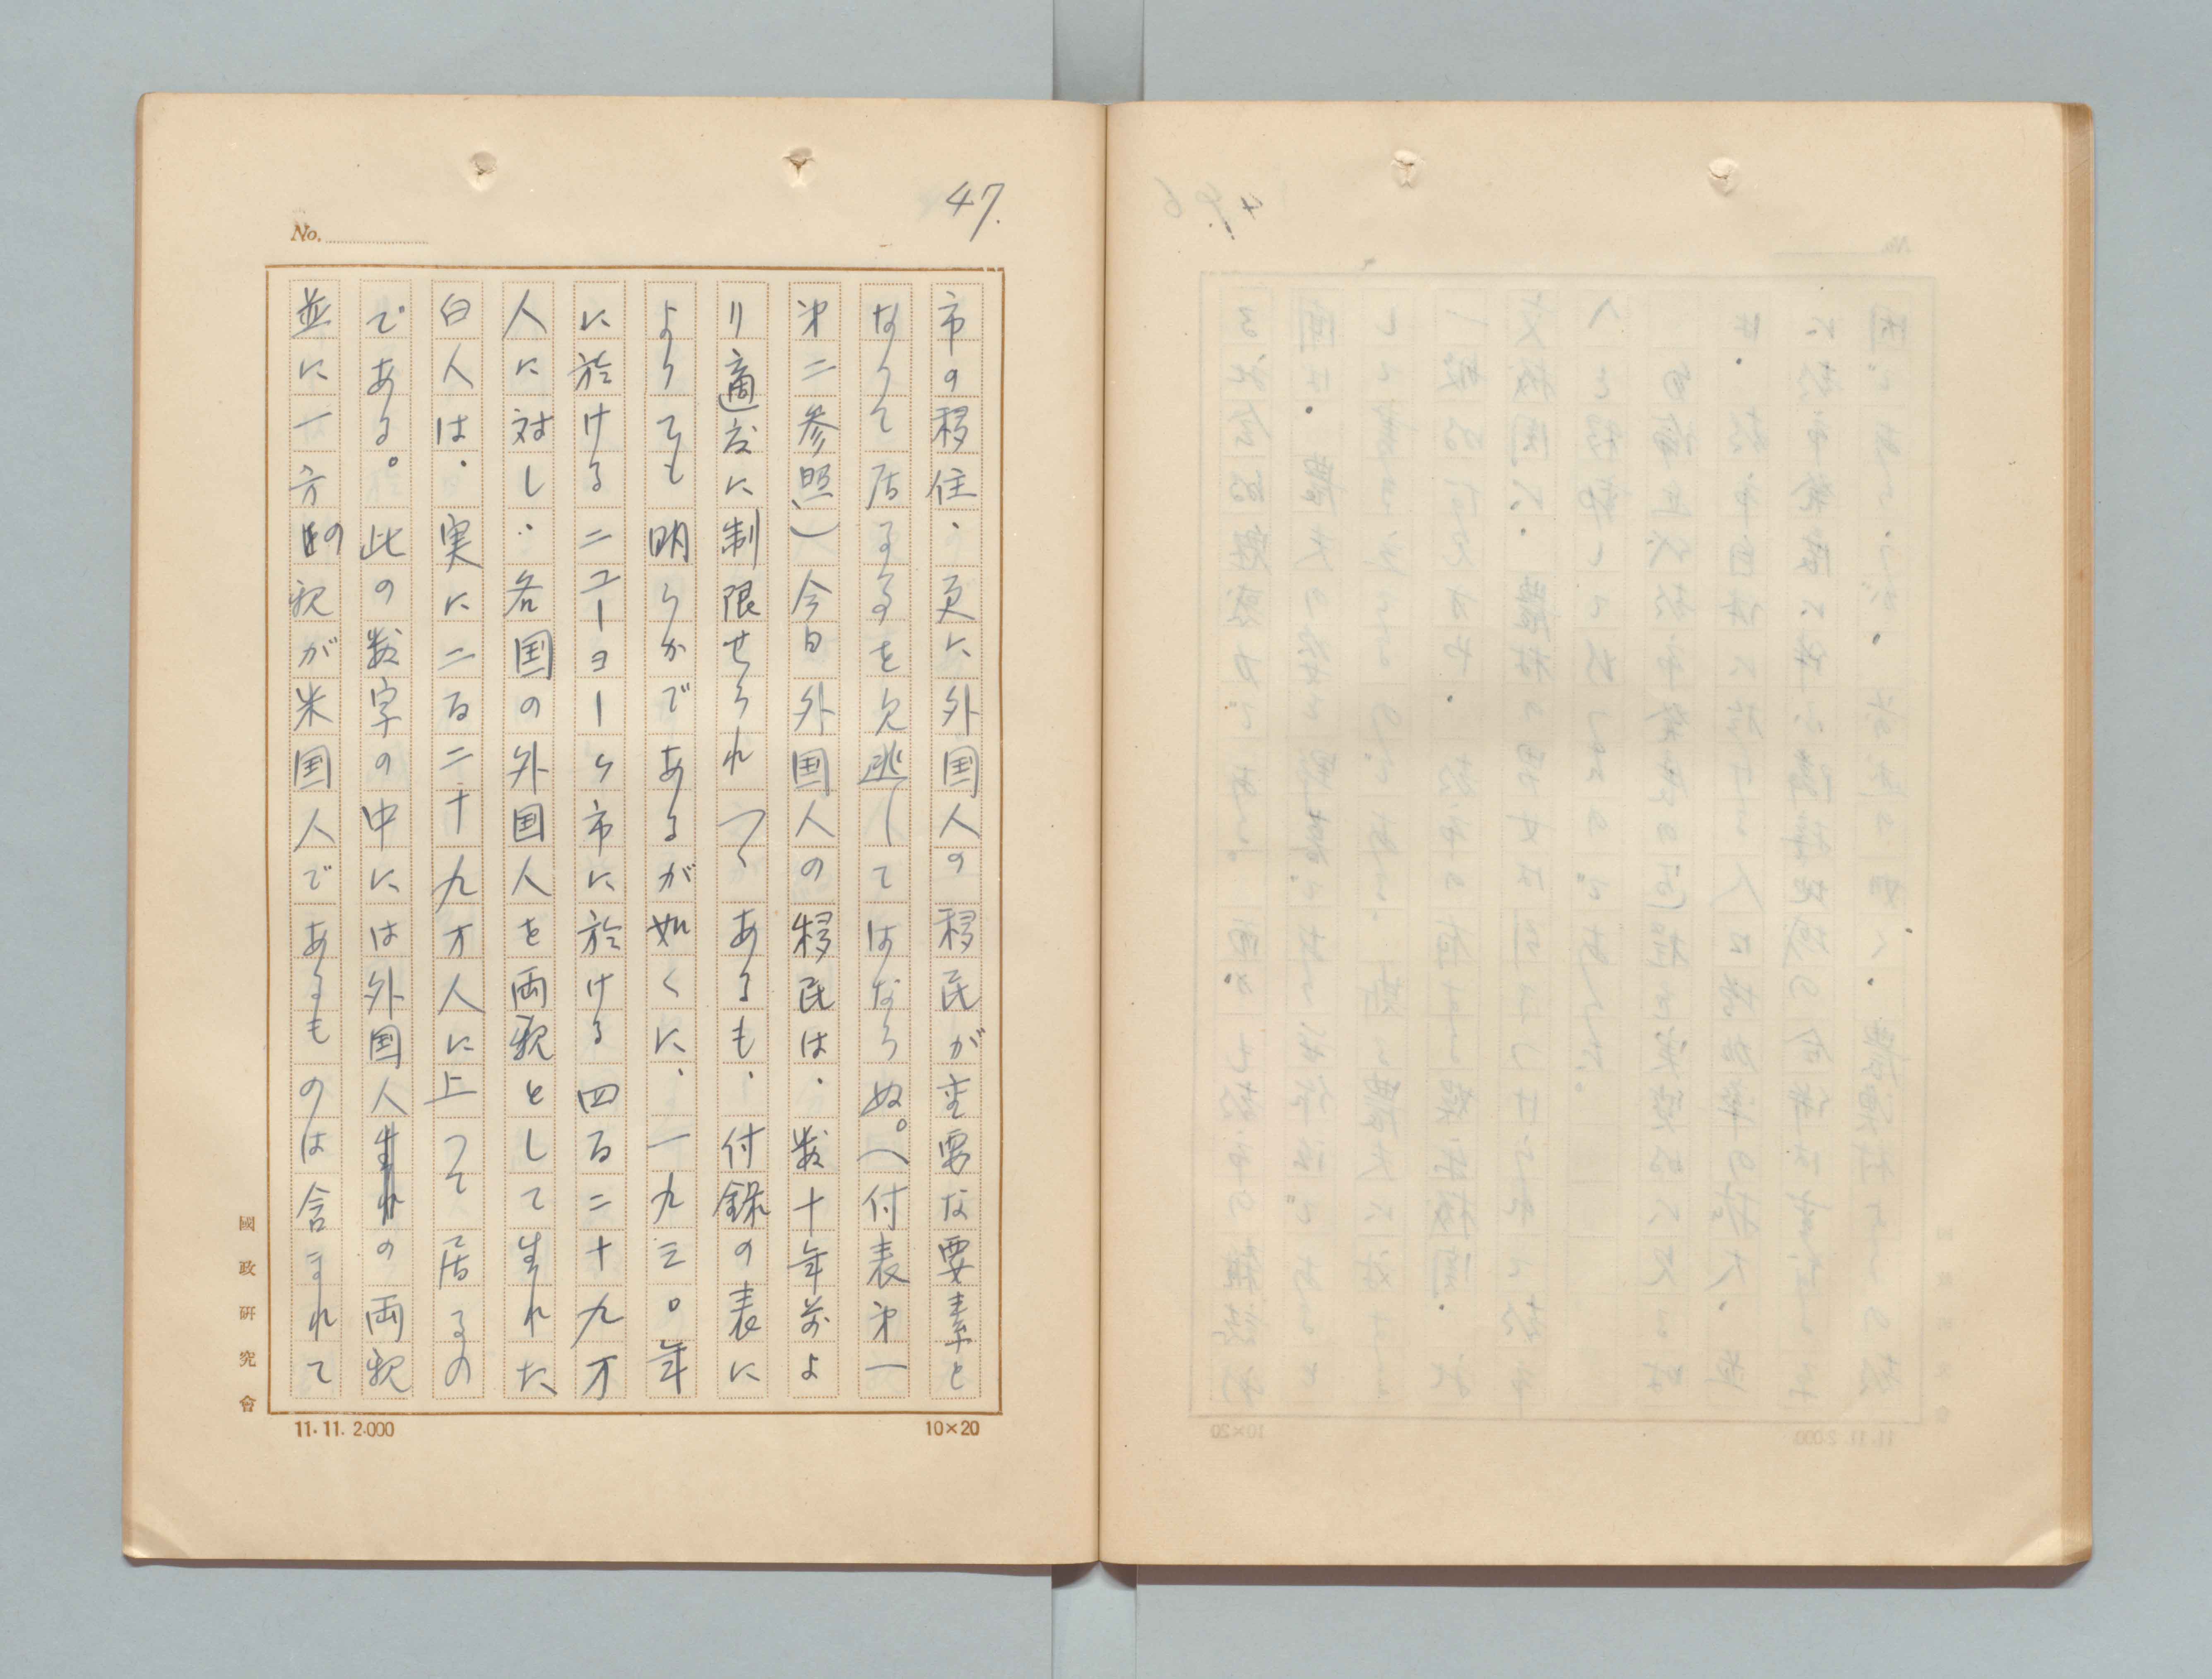 47.
No.
市の移住、更に外国人の移民が重要な要素と
なりて居る事を欠逃してはならぬ。(付表第一
第二参照)今日外国人の移民は、数十年前よ
り適度に制限せられつゝあるも、付録の表に
よりても明らかであるが如くに、一九三〇年
に於けるニユーヨーク市に於ける四百二十九万
人に対し、各国の外国人を両親として生れた
白人は、実に二百二十九万人に上つて居るの
である。此の数字の中には外国人の両親
並に一方の親が米国人であるものは含まれて
國政研究會
11.11.2.000
10×20